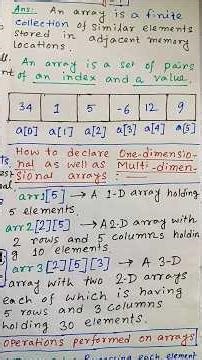 Ans: An array is a finite
collection of similar elements
stored in adjacent memory
locations.
An array is a set of pairs
of an index and a value.
34 1 5 -6 12 9
a[0] a[1] a[2] a[3] a[4] a[5]
How to declare One-dimensio-
nal as well as Multi-dimen-
sional arrays :
arr1[5] → A 1-D array holding
5 elements
arr2[2][5] → A 2-D array with
2 rows and 5 columns holdin
g 10 elements
arr3[2][5][3] → A 3-D
array with two 2-D arrays
each of which is having
5 rows and 3 columns
holding 30 elements.
Operations performed on arrays
each element